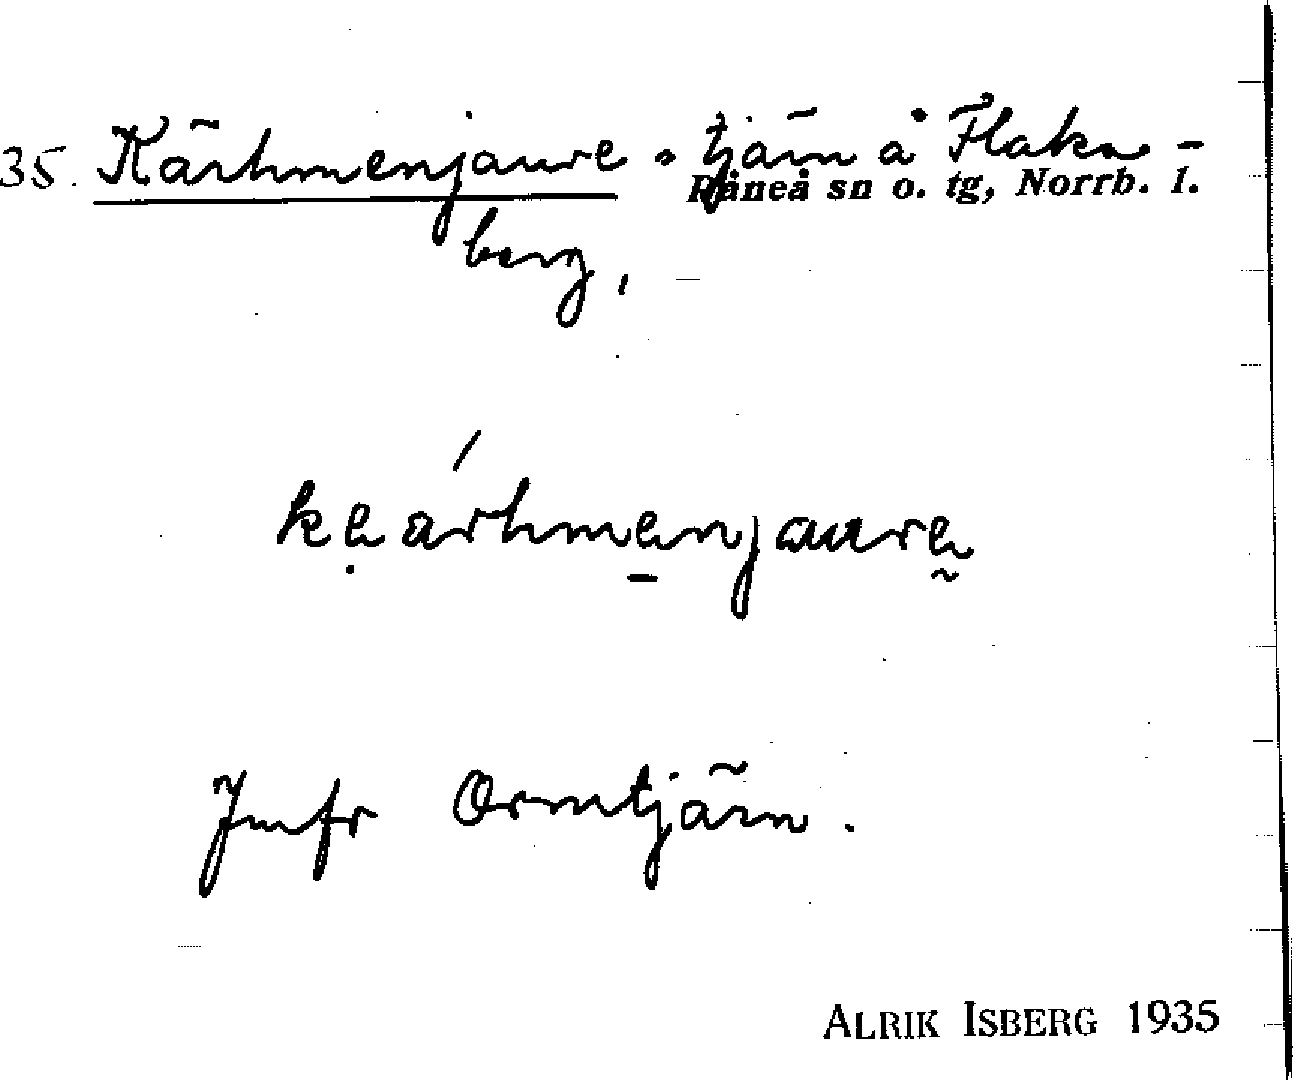 35. Kärhmenjaure, tjärn å Flaka-
Råneå sn o. tg, Norrb. l.
berg,
keärhmenjaure
Jmfr Ormtjärn.
ALRIK ISBERG 1935